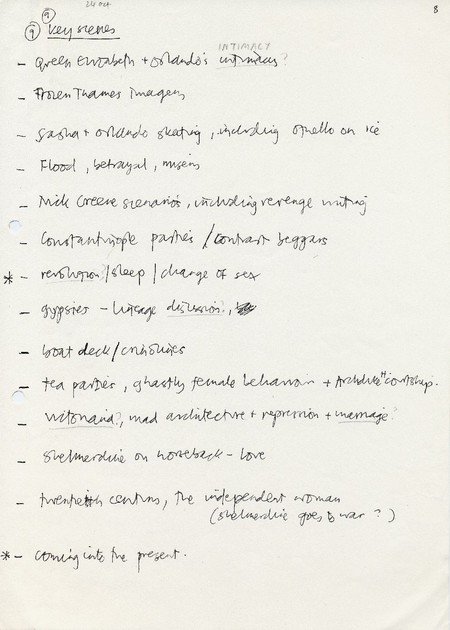 24 Oct
8
9
9 Key scenes
INTIMACY
- Queen Elizabeth + Orlando's intimacy?
- Frozen Thames imagery
- Sasha + Orlando skating, including Othello on ice
- Flood, betrayal, misery
- Nick Greene scenarios, including revenge writing
- Constantinople parties / contrast beggars
* - revolution? / sleep / change of sex
- gypsies - lineage discussion?,
- boat deck / crinolines
- tea parties, ghastly female behaviour + Archduke H courtship.
- Victoriana?, mad architecture + repression + marriage?
- Shelmerdine on horseback - love
- twentieth century, the independent woman
(Shelmerdine goes to war?)
* - coming into the present.